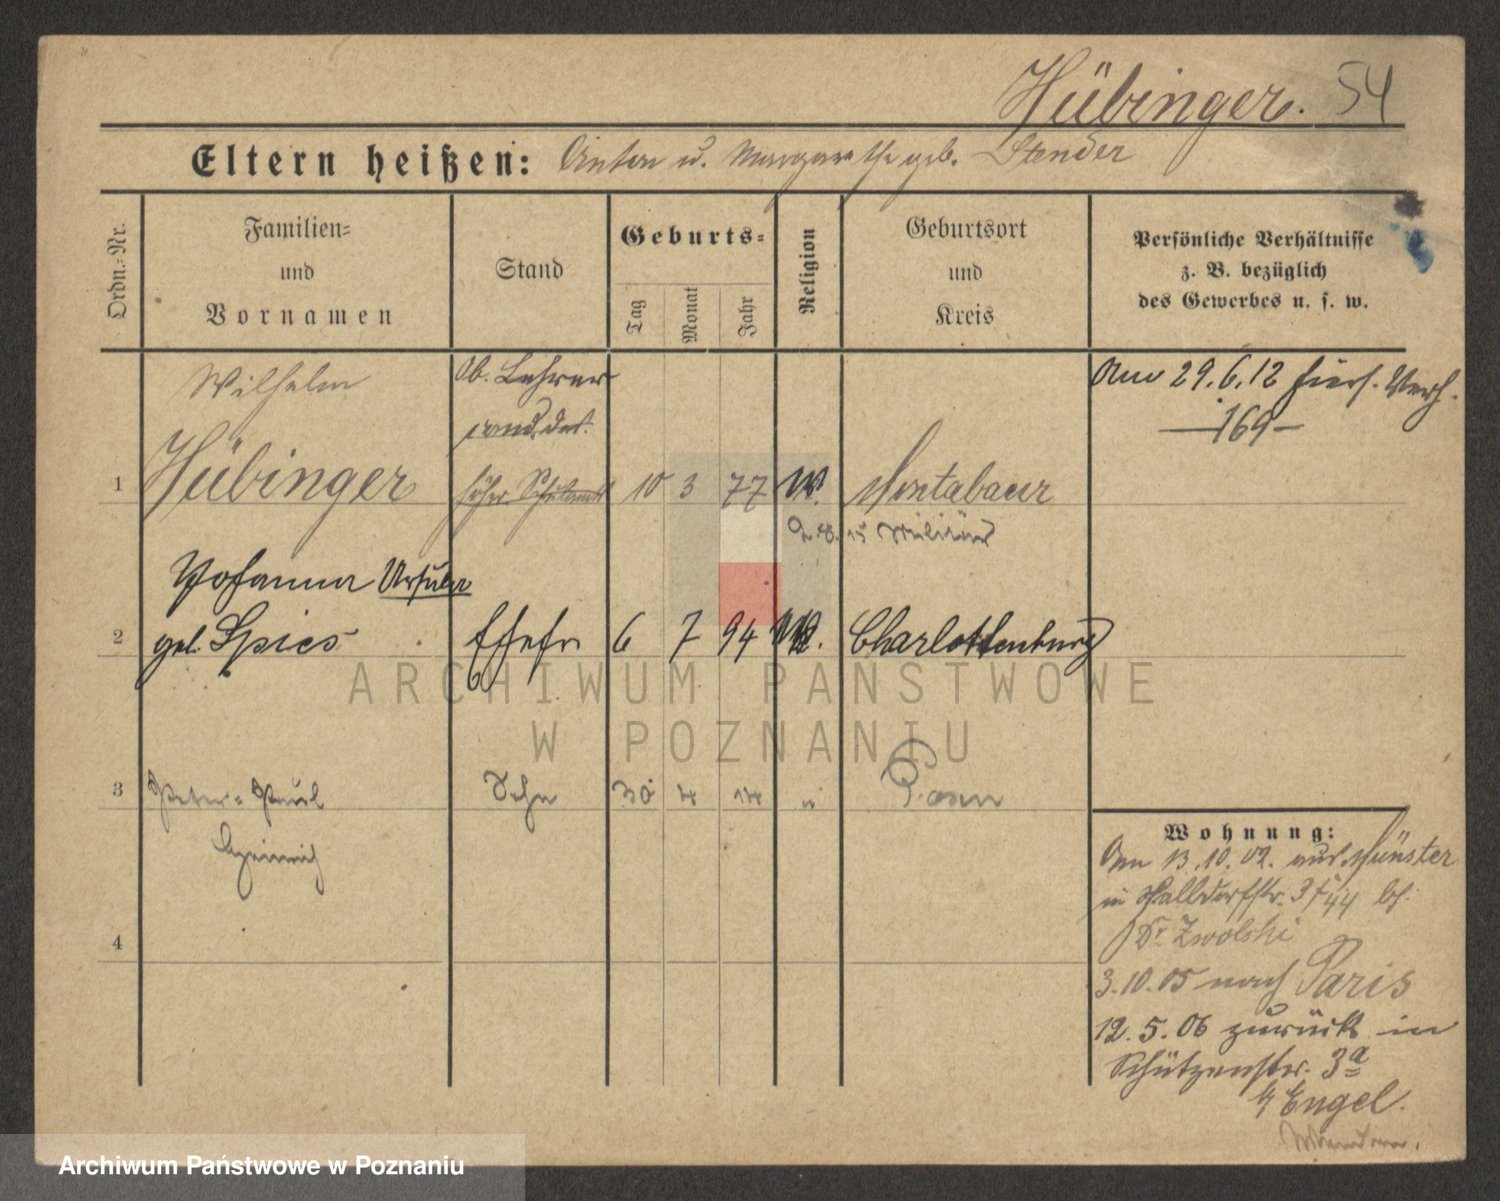 Hübinger. 54
Eltern heißen: Anton u. Margarethe geb. Stender
Ordn.-Nr.
Familien-
und
Vornamen
Stand
Geburts-
Tag
Monat
Jahr
Religion
Geburtsort
und
Kreis
Persönliche Verhältnisse
z. B. bezüglich
des Gewerbes u. s. w.
Wilhelm
Ob. Lehrer
cand. des
1 Hübinger höher. Schulamts 10 3 77 Montabaur
Am 29.6.12 hiers. Verh.
—169—
2.8.15 Militär
Johanna Ursula
2 geb. Spies Ehefr 6 7 94 Charlottenburg
3 Peter-Paul Sohn 30 4 14 " Posen
Heinrich
4
Wohnung:
Am 13.10.02. aus Münster
in 3/44 bei
Dr. Zwolski
3.10.05 nach Paris
12.5.06 zurück in
Schützenstr. 3a
b/ Engel.
ARCHIWUM PAŃSTWOWE
W POZNANIU
Archiwum Państwowe w Poznaniu